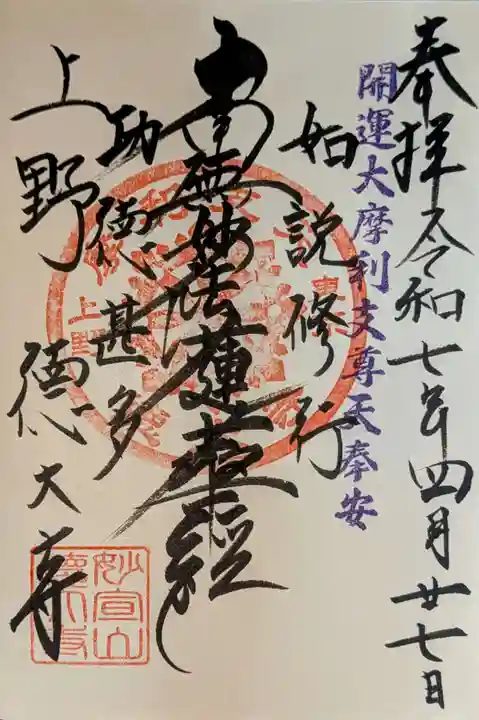 奉拝 令和七年四月廿七日
開運大摩利支尊天奉安
如説修行
南無妙法蓮華経
功徳甚多
上野 徳大寺
妙宣山
徳大寺
上野